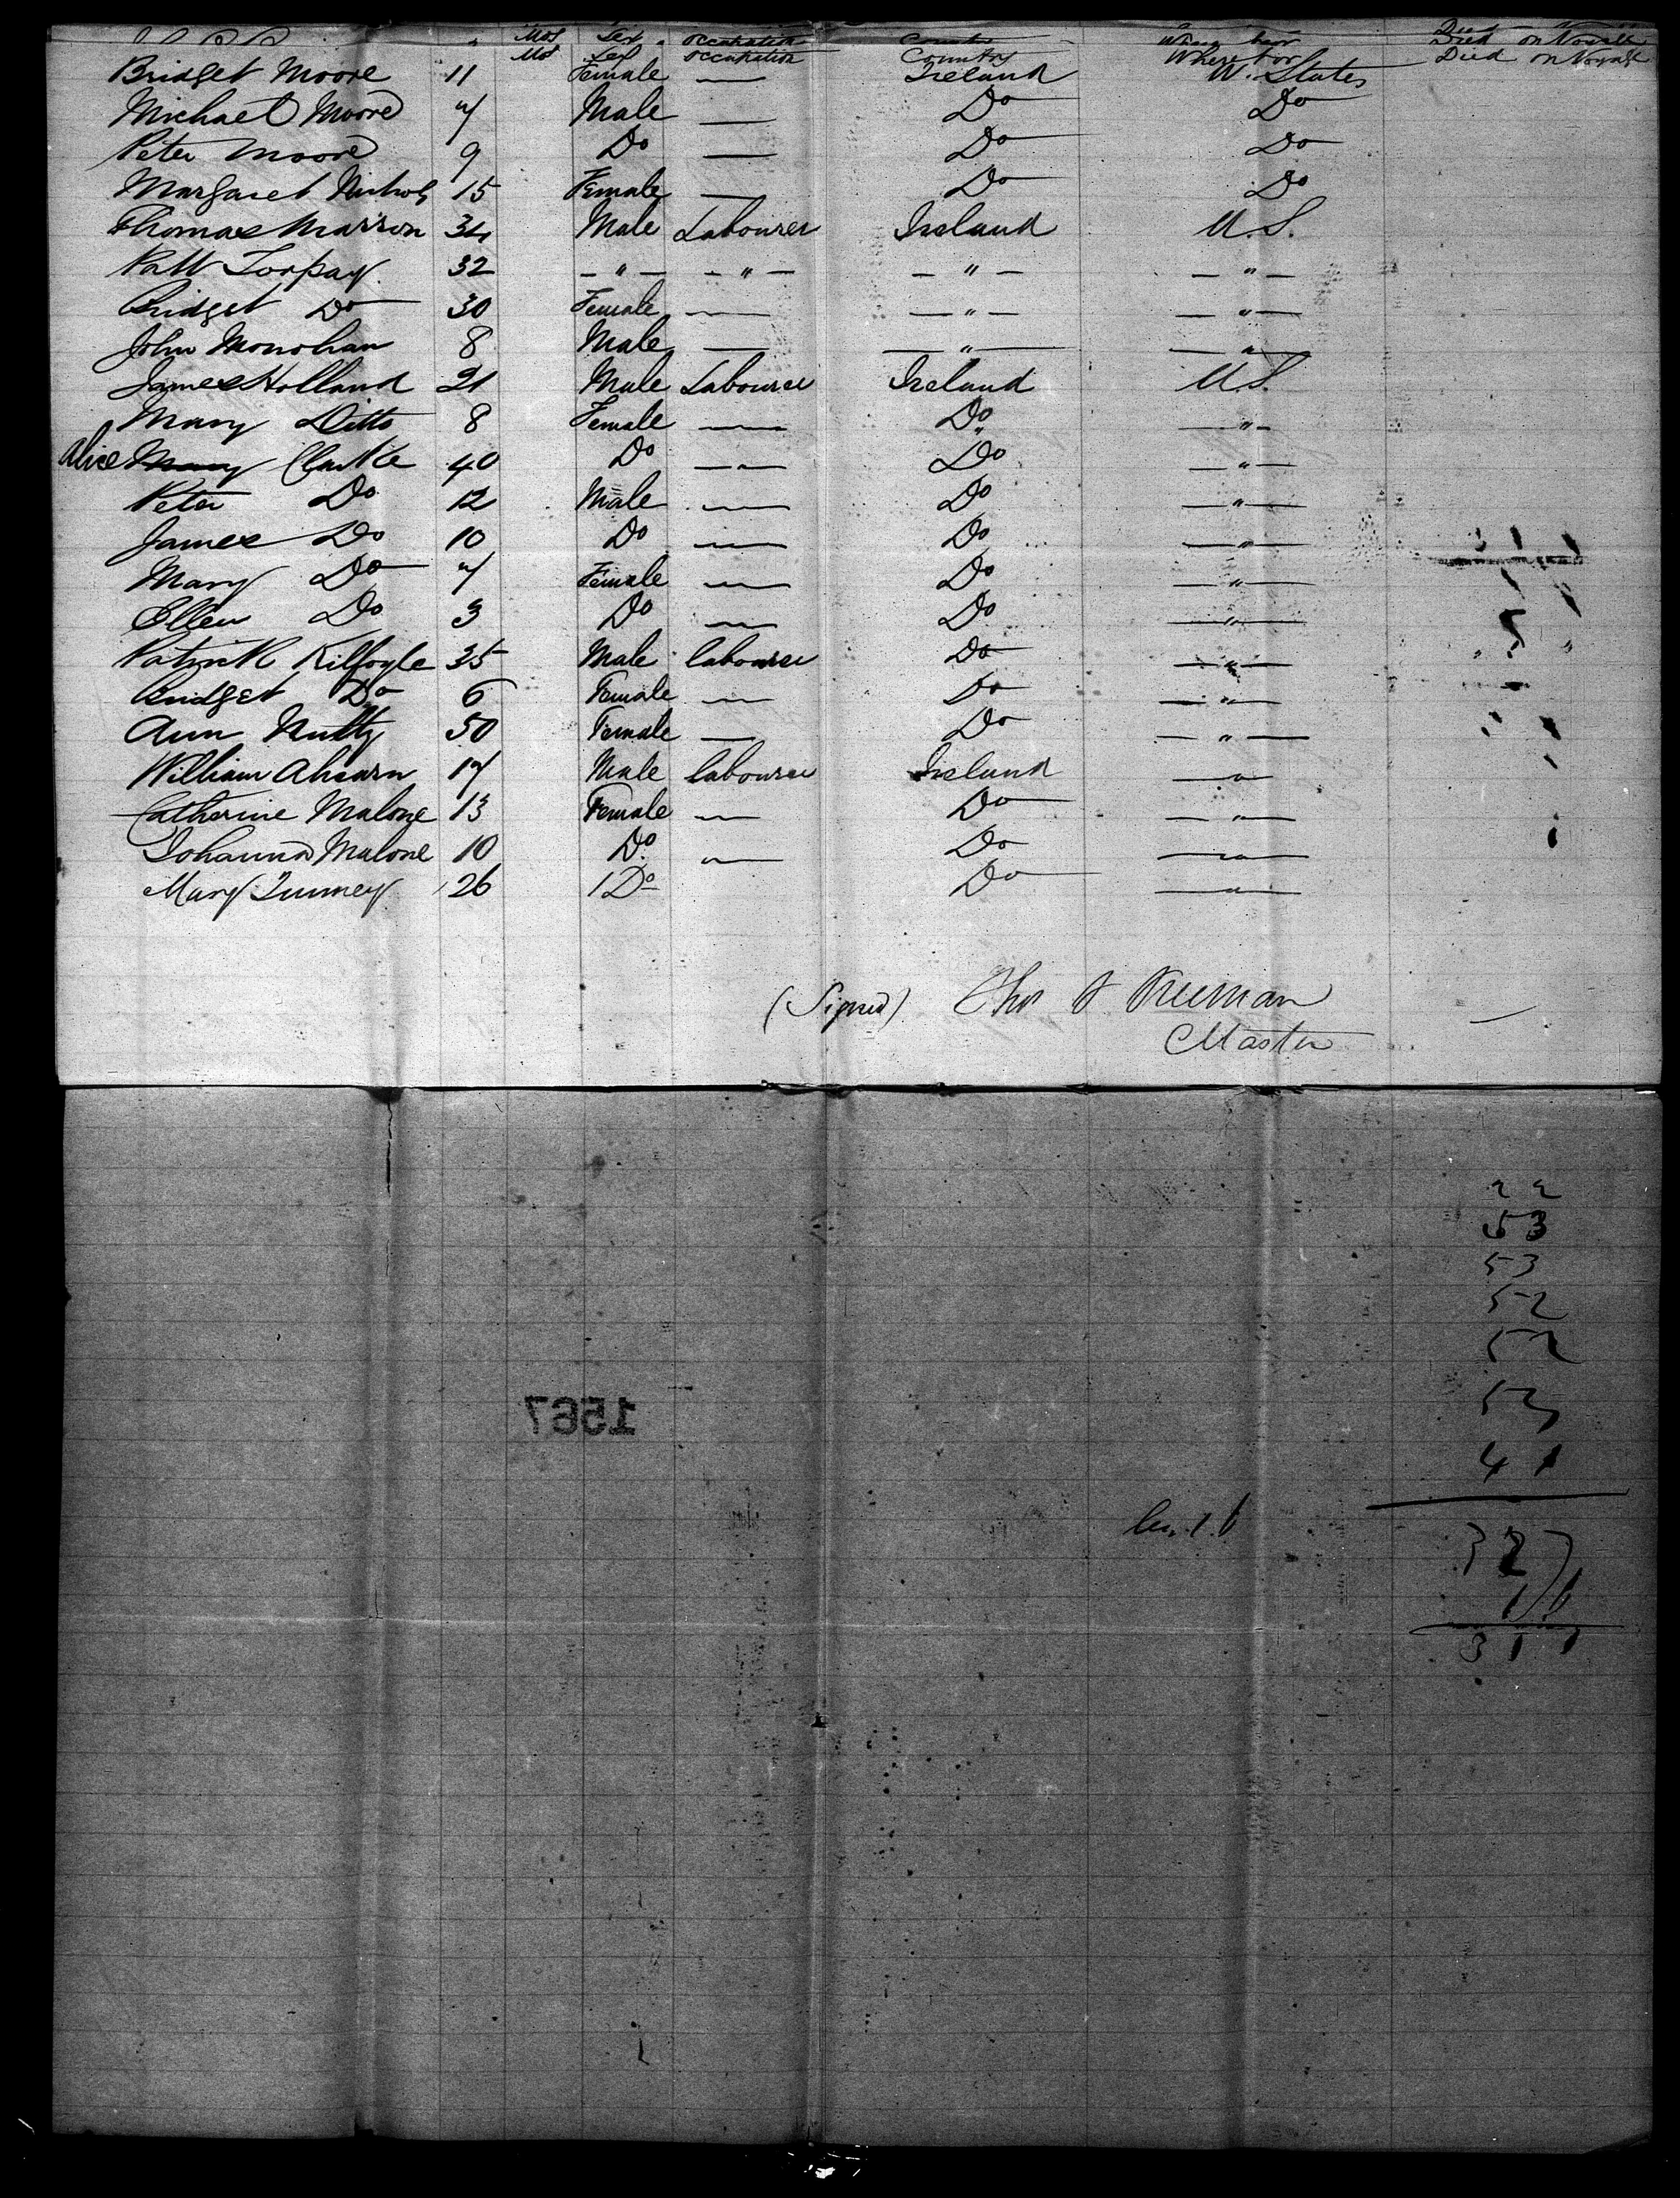 Mos Sex Occupation Country Where for Died on Voyage
Bridget Moore 11 Female — Ireland U. States
Michael Moore 7 Male — Do Do
Peter Moore 9 Do — Do Do
Margaret Nichols 15 Female — Do Do
Thomas Marron 34 Male Labourer Ireland U.S.
Patt Torpay 32 — " — — " — — " — — " —
Bridget Do 30 Female — — " — — " —
John Monohan 8 Male — — " — — " —
James Holland 21 Male Labourer Ireland U.S.
Mary Ditto 8 Female — Do — " —
Alice Mary Clarke 40 Do — Do — " —
Peter Do 12 Male — Do — " —
James Do 10 Do — Do — " —
Mary Do 7 Female — Do — " —
Ellen Do 3 Do — Do — " —
Patrick Kilfoyle 35 Male labourer Do — " —
Bridget Do 6 Female — Do — " —
Ann Nutty 50 Female — Do — " —
William Ahearn 17 Male labourer Ireland — " —
Catherine Malone 13 Female — Do — " —
Johanna Malone 10 Do — Do — " —
Mary 26 Do Do — " —
(Signed) Freeman
Master
22
53
53
52
52
53
41
1567
327
16
311